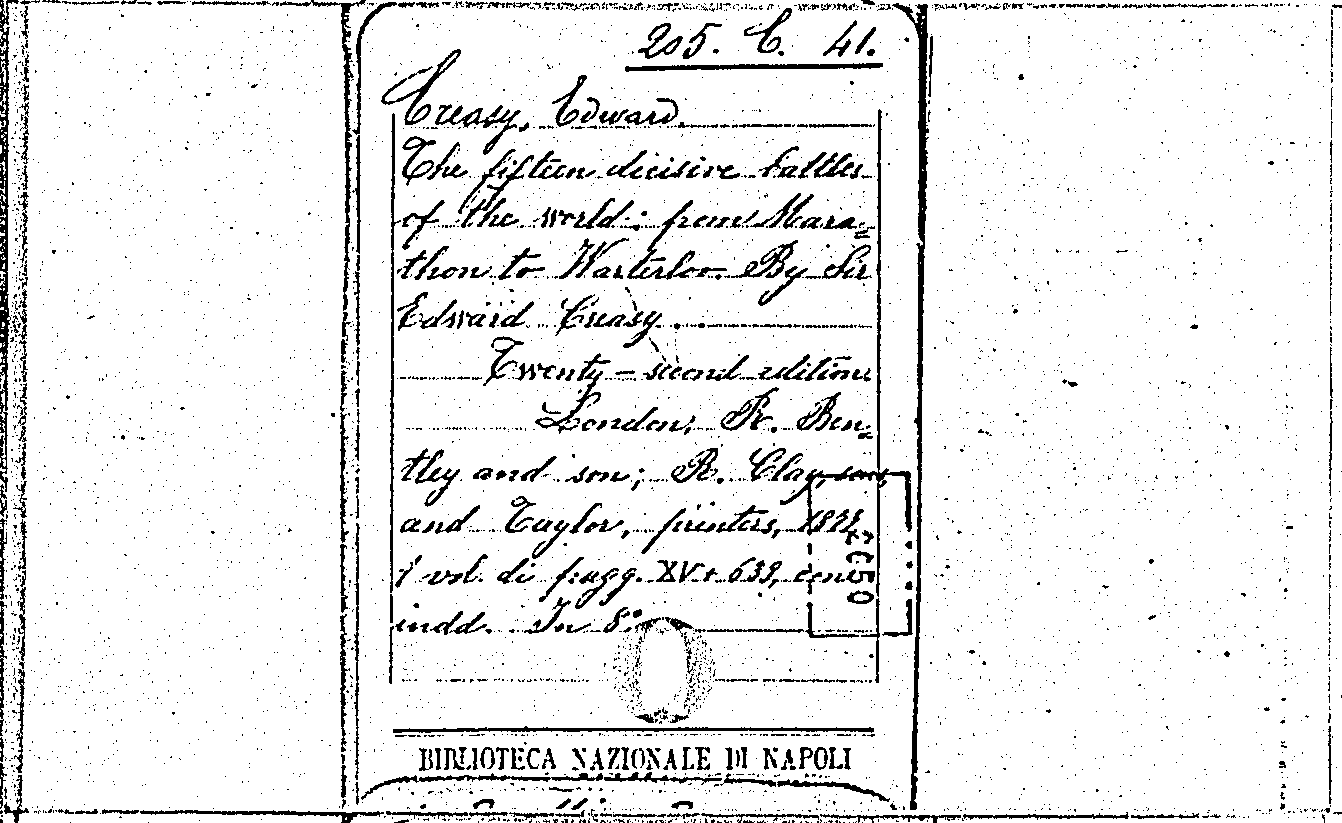 205. C. 41.
Creasy, Edward.
The fifteen decisive battles
of the world: from Mara=
thon to Warterloo. By Sir
Edward Creasy.
Twenty-second edition.
London, R. Ben=
tley and son; R. Clay, sons,
and Taylor, printers,
1 vol. di pagg. XV+639, con
indd. In 8°
BIBLIOTECA NAZIONALE DI NAPOLI